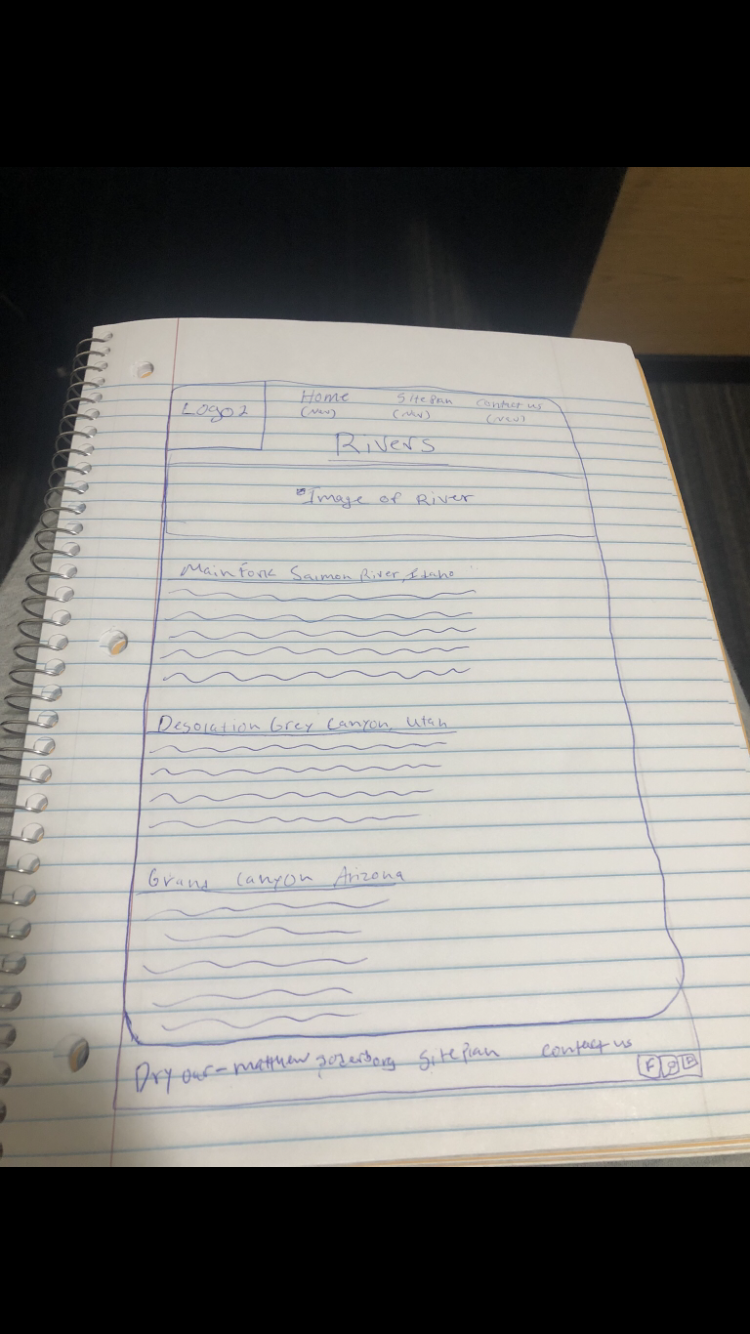 Logo 2
Home Site Plan Contact us
(Nav) (Nav) (Nav)
Rivers
Image of River
Main Fork Salmon River, Idaho
Desolation Grey Canyon, Utah
Grand Canyon Arizona
Dry oar - matthew site plan contact us
F